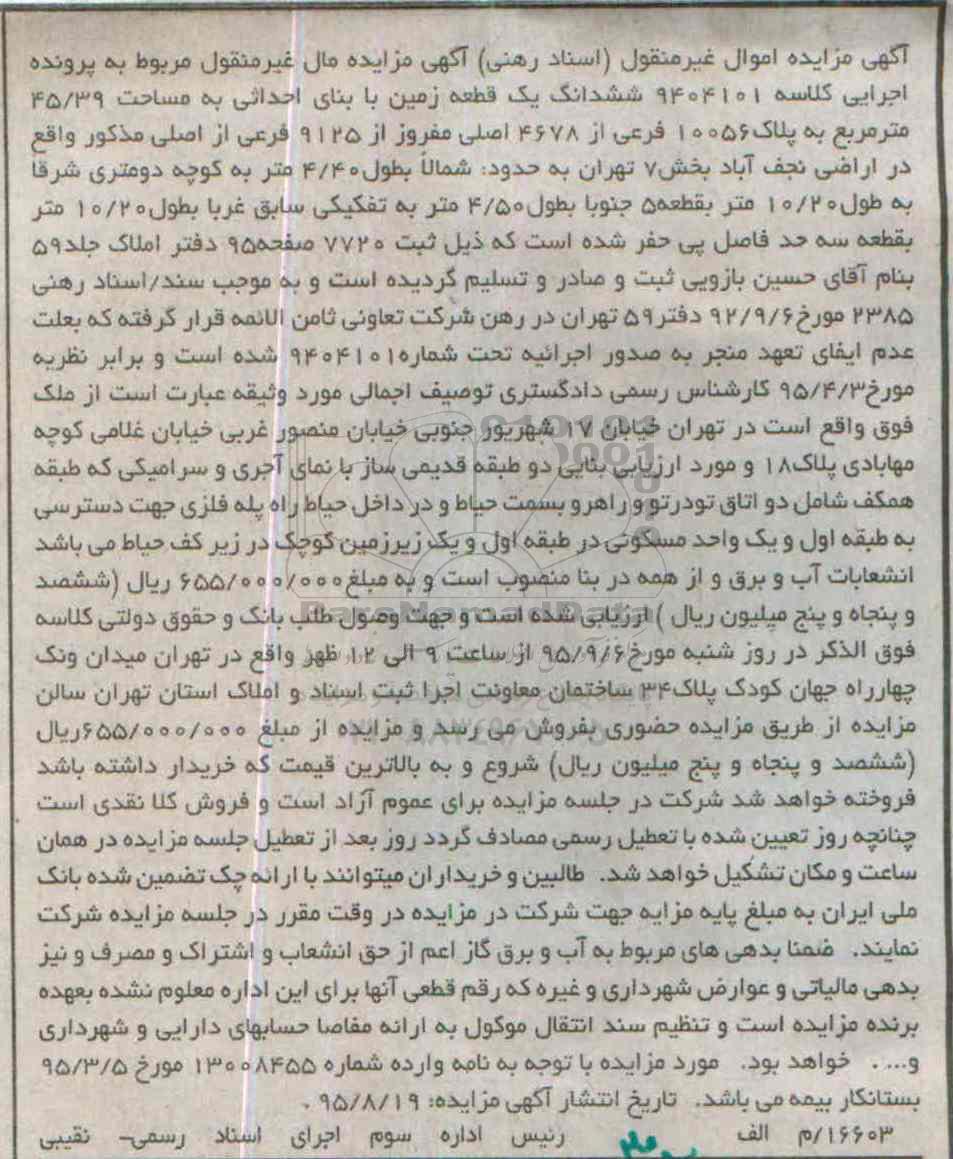 آگهی مزایده اموال غیرمنقول (اسناد رهنی) آگهی مزایده مال غیرمنقول مربوط به پرونده
اجرایی کلاسه ۹۴۰۴۱۰۱ ششدانگ یک قطعه زمین با بنای احداثی به مساحت ۴۵/۳۹
مترمربع به پلاک۱۰۰۵۶ فرعی از ۴۶۷۸ اصلی مفروز از ۹۱۲۵ فرعی از اصلی مذکور واقع
در اراضی نجف آباد بخش۷ تهران به حدود: شمالاً بطول۴/۴۰ متر به کوچه دومتری شرقا
به طول۱۰/۲۰ متر بقطعه۵ جنوبا بطول۴/۵۰ متر به تفکیکی سابق غربا بطول۱۰/۲۰ متر
بقطعه سه حد فاصل پی حفر شده است که ذیل ثبت ۷۷۲۰ صفحه۹۵ دفتر املاک جلد۵۹
بنام آقای حسین بازویی ثبت و صادر و تسلیم گردیده است و به موجب سند/اسناد رهنی
۲۳۸۵ مورخ۹۲/۹/۶ دفتر۵۹ تهران در رهن شرکت تعاونی ثامن الائمه قرار گرفته که بعلت
عدم ایفای تعهد منجر به صدور اجرائیه تحت شماره۹۴۰۴۱۰۱ شده است و برابر نظریه
مورخ۹۵/۴/۳ کارشناس رسمی دادگستری توصیف اجمالی مورد وثیقه عبارت است از ملک
فوق واقع است در تهران خیابان ۱۷ شهریور جنوبی خیابان منصور غربی خیابان غلامی کوچه
مهابادی پلاک۱۸ و مورد ارزیابی بنایی دو طبقه قدیمی ساز با نمای آجری و سرامیکی که طبقه
همکف شامل دو اتاق تودرتو و راهرو بسمت حیاط و در داخل حیاط راه پله فلزی جهت دسترسی
به طبقه اول و یک واحد مسکونی در طبقه اول و یک زیرزمین کوچک در زیر کف حیاط می باشد
انشعابات آب و برق و از همه در بنا منصوب است و به مبلغ۶۵۵/۰۰۰/۰۰۰ ریال (ششصد
و پنجاه و پنج میلیون ریال ) ارزیابی شده است و جهت وصول طلب بانک و حقوق دولتی کلاسه
فوق الذکر در روز شنبه مورخ۹۵/۹/۶ از ساعت ۹ الی ۱۲ ظهر واقع در تهران میدان ونک
چهارراه جهان کودک پلاک۳۴ ساختمان معاونت اجرا ثبت اسناد و املاک استان تهران سالن
مزایده از طریق مزایده حضوری بفروش می رسد و مزایده از مبلغ ۶۵۵/۰۰۰/۰۰۰ریال
(ششصد و پنجاه و پنج میلیون ریال) شروع و به بالاترین قیمت که خریدار داشته باشد
فروخته خواهد شد شرکت در جلسه مزایده برای عموم آزاد است و فروش کلا نقدی است
چنانچه روز تعیین شده با تعطیل رسمی مصادف گردد روز بعد از تعطیل جلسه مزایده در همان
ساعت و مکان تشکیل خواهد شد. طالبین و خریداران میتوانند با ارائه چک تضمین شده بانک
ملی ایران به مبلغ پایه مزایه جهت شرکت در مزایده در وقت مقرر در جلسه مزایده شرکت
نمایند. ضمنا بدهی های مربوط به آب و برق گاز اعم از حق انشعاب و اشتراک و مصرف و نیز
بدهی مالیاتی و عوارض شهرداری و غیره که رقم قطعی آنها برای این اداره معلوم نشده بعهده
برنده مزایده است و تنظیم سند انتقال موکول به ارائه مفاصا حسابهای دارایی و شهرداری
و.... خواهد بود. مورد مزایده با توجه به نامه وارده شماره ۱۳۰۰۸۴۵۵ مورخ ۹۵/۳/۵
بستانکار بیمه می باشد. تاریخ انتشار آگهی مزایده: ۹۵/۸/۱۹ .
۱۶۶۰۳/م الف رئیس اداره سوم اجرای اسناد رسمی- نقیبی